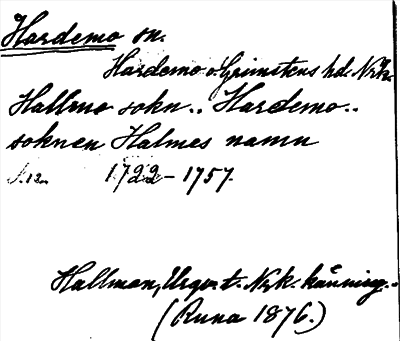 Hardemo sn.
Hardemo o. Grimstens hd. Nrk.
Hallmo sokn.. Hardemo..
soknen Halmes namn
S. 12. 1722-1757.
Hallman, Urgr. t. Nrk. känning..
(Runa 1876.)